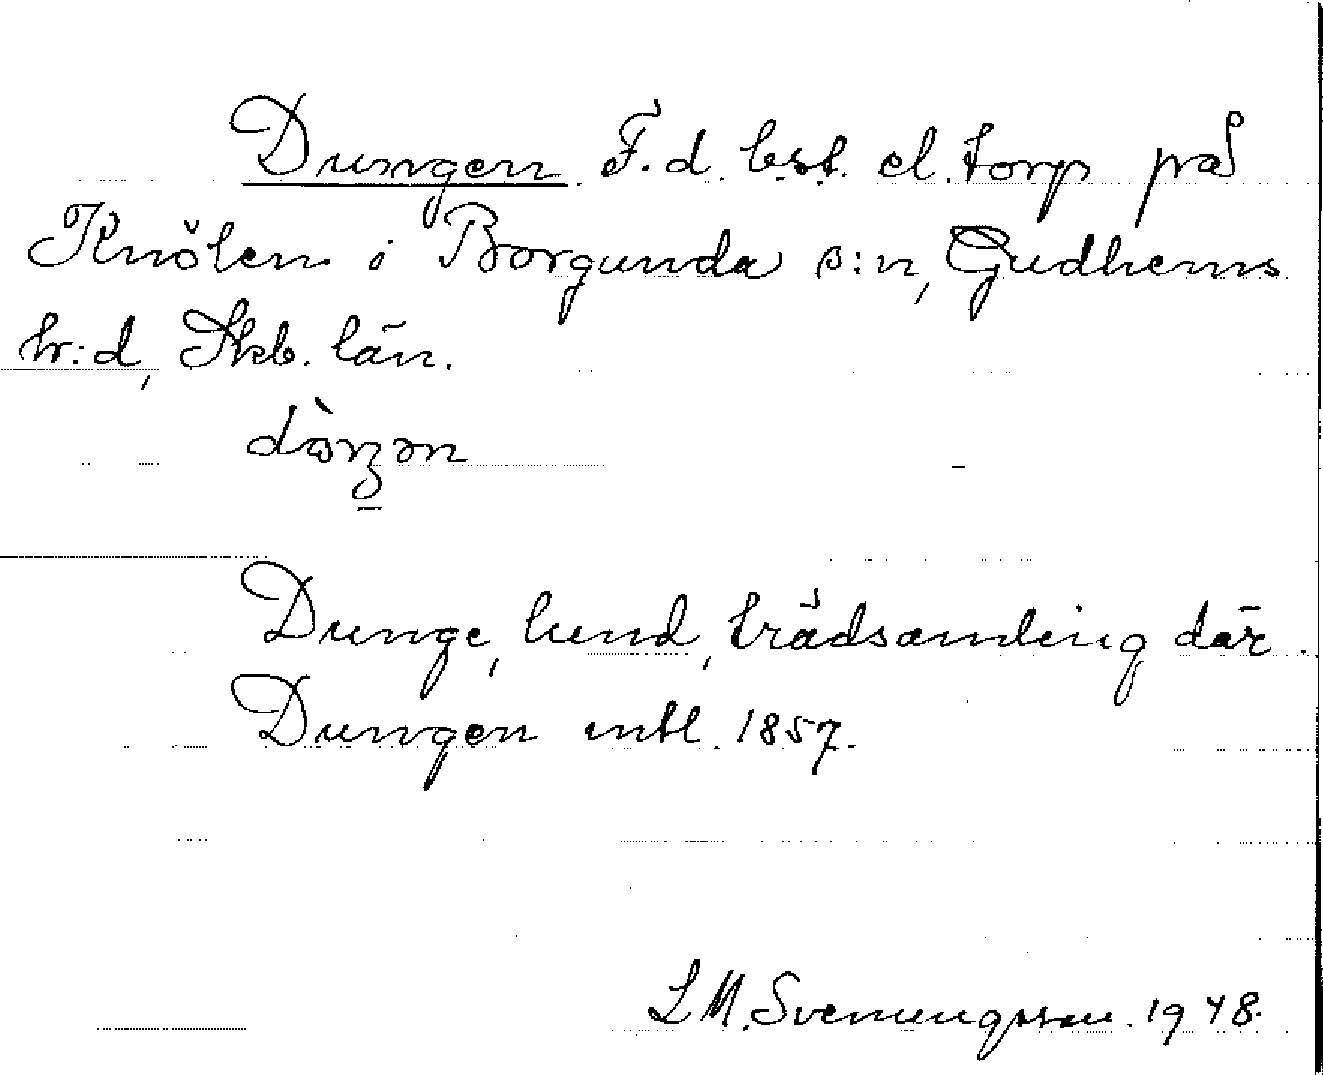 Dungen F.d. bst. el. torp på
Knölen i Borgunda s:n, Gudhems
hr:d, Skb. län.
Dunge, lund, trädsamling där.
Dungen intl. 1857.
L M. Svenungsson. 1948.